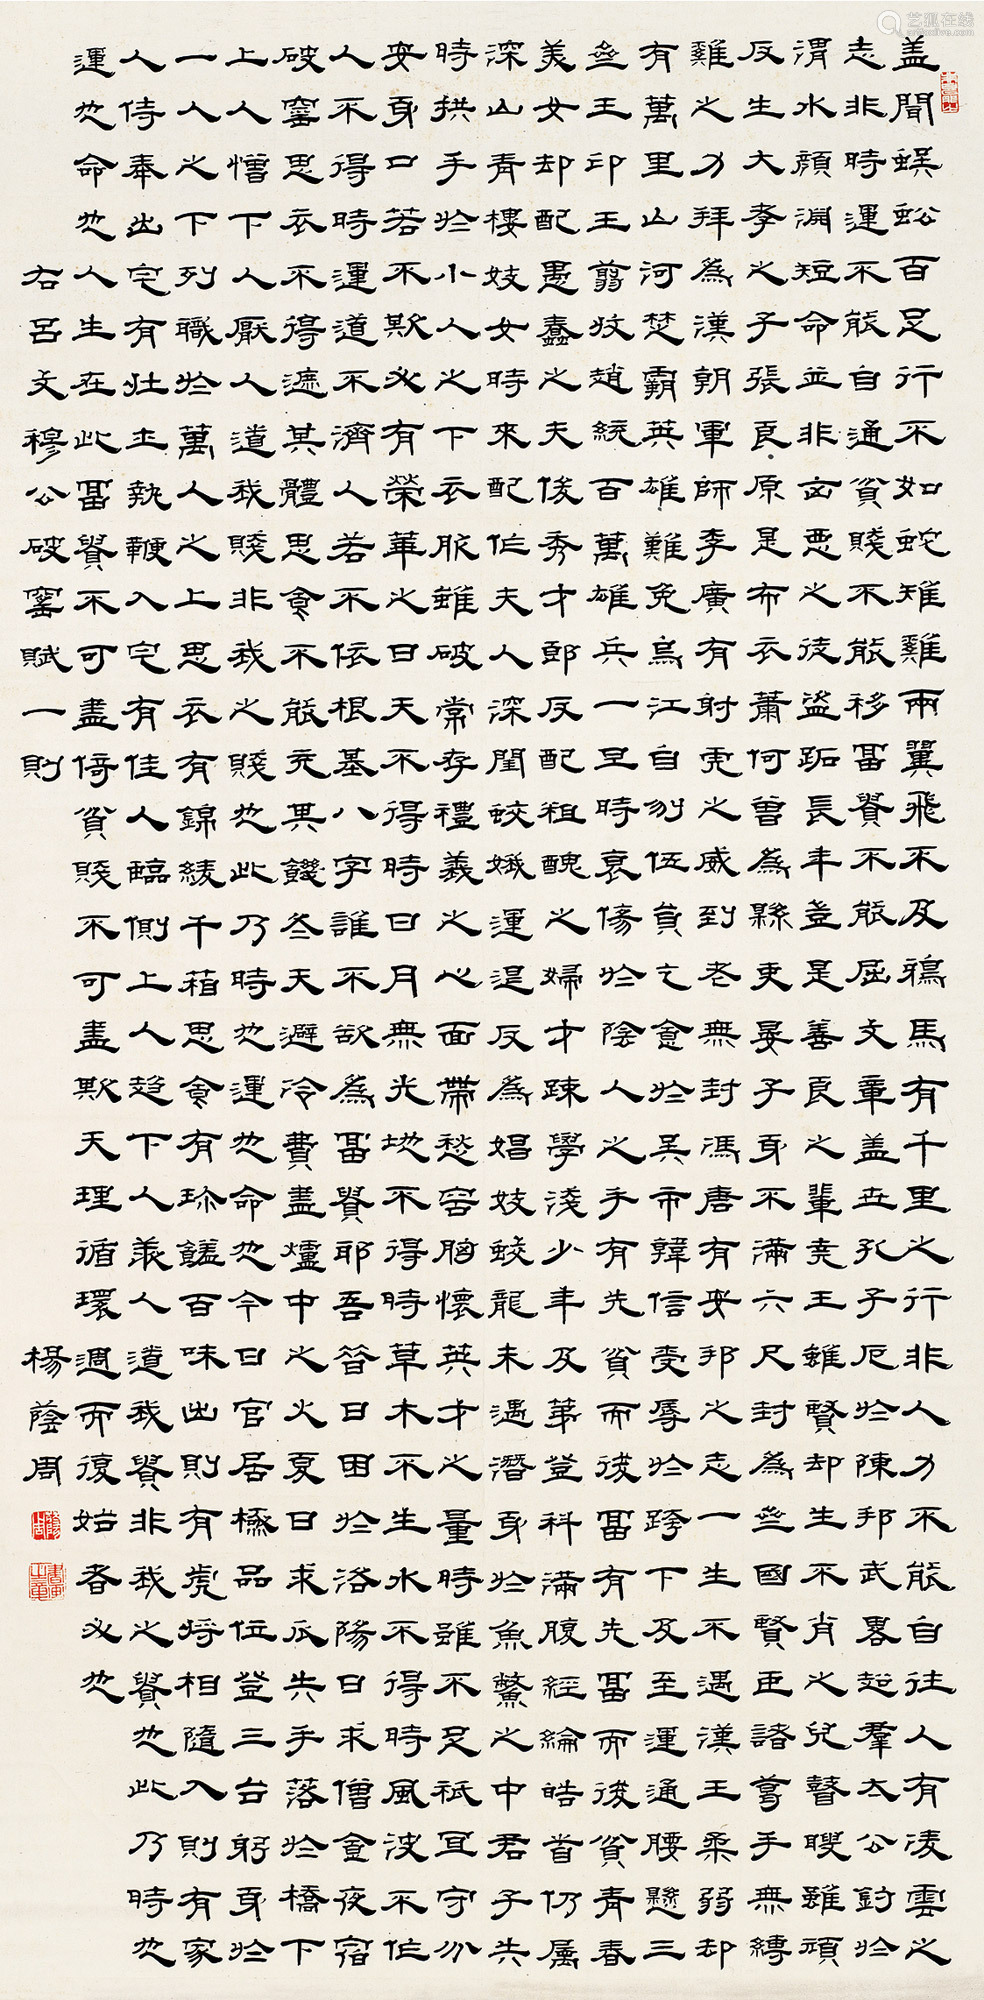 蓋聞蜈蚣百足行不如蛇雉雞兩翼飛不及鴉馬有千里之行非人力不能自往人有凌雲之
志非時運不能自通貧賤不能移富貴不能屈文章蓋世孔子厄於陳邦武畧超羣太公釣於
渭水顏淵短命並非凶惡之徒盜跖長年豈是善良之輩堯王雖賢却生不肖之兒瞽瞍雖頑
反生大孝之子張良原是布衣蕭何曾為縣吏晏子身不滿六尺封為亝國賢臣諸葛手無縛
雞之力拜為漢朝軍師李廣有射虎之威到老無封馮唐有安邦之志一生不遇漢王柔弱却
有萬里山河楚霸英雄難免烏江自刎伍員乞食於吳市韓信受辱於跨下及至運通腰懸三
亝王印王翦牧趙統百萬雄兵一旦時衰傷於陰人之手有先貧而後富有先富而後貧青春
美女却配愚蠢之夫俊秀才郎反配粗醜之婦才疎學淺少年及第登科滿腹經綸皓首仍屬
深山青樓妓女時來配作夫人深閨蛟娥運退反為娼妓蛟龍未遇潛身於魚鱉之中君子失
時拱手於小人之下衣服雖破常存禮義之心面帶愁容胸懷英才之量時雖不足祇宜守分
安身口若不欺必有榮華之日天不得時日月無光地不得時草木不生水不得時風波不作
人不得時運道不濟人若不依根基八字誰不欲為富貴耶吾昔日困於洛陽日求僧食夜宿
破窰思衣不得遮其體思食不能充其饑冬天避冷費盡爐中之火夏日求瓜失手落於橋下
上人憎下人厭人道我賤非我之賤也此乃時也運也命也今日官居極品位登三台躬身於
一人之下列職於萬人之上思衣有錦綾千箱思食有珍饈百味出則有虎將相隨入則有家
人侍奉出宅有壯士執鞭入宅有佳人臨側上人趨下人羨人道我貴非我之貴也此乃時也
運也命也人生在此富貴不可盡倚貧賤不可盡欺天理循環週而復始者必也
右呂文穆公破窰賦一則 楊蔭周
艺狐在线
artfoxlive.com